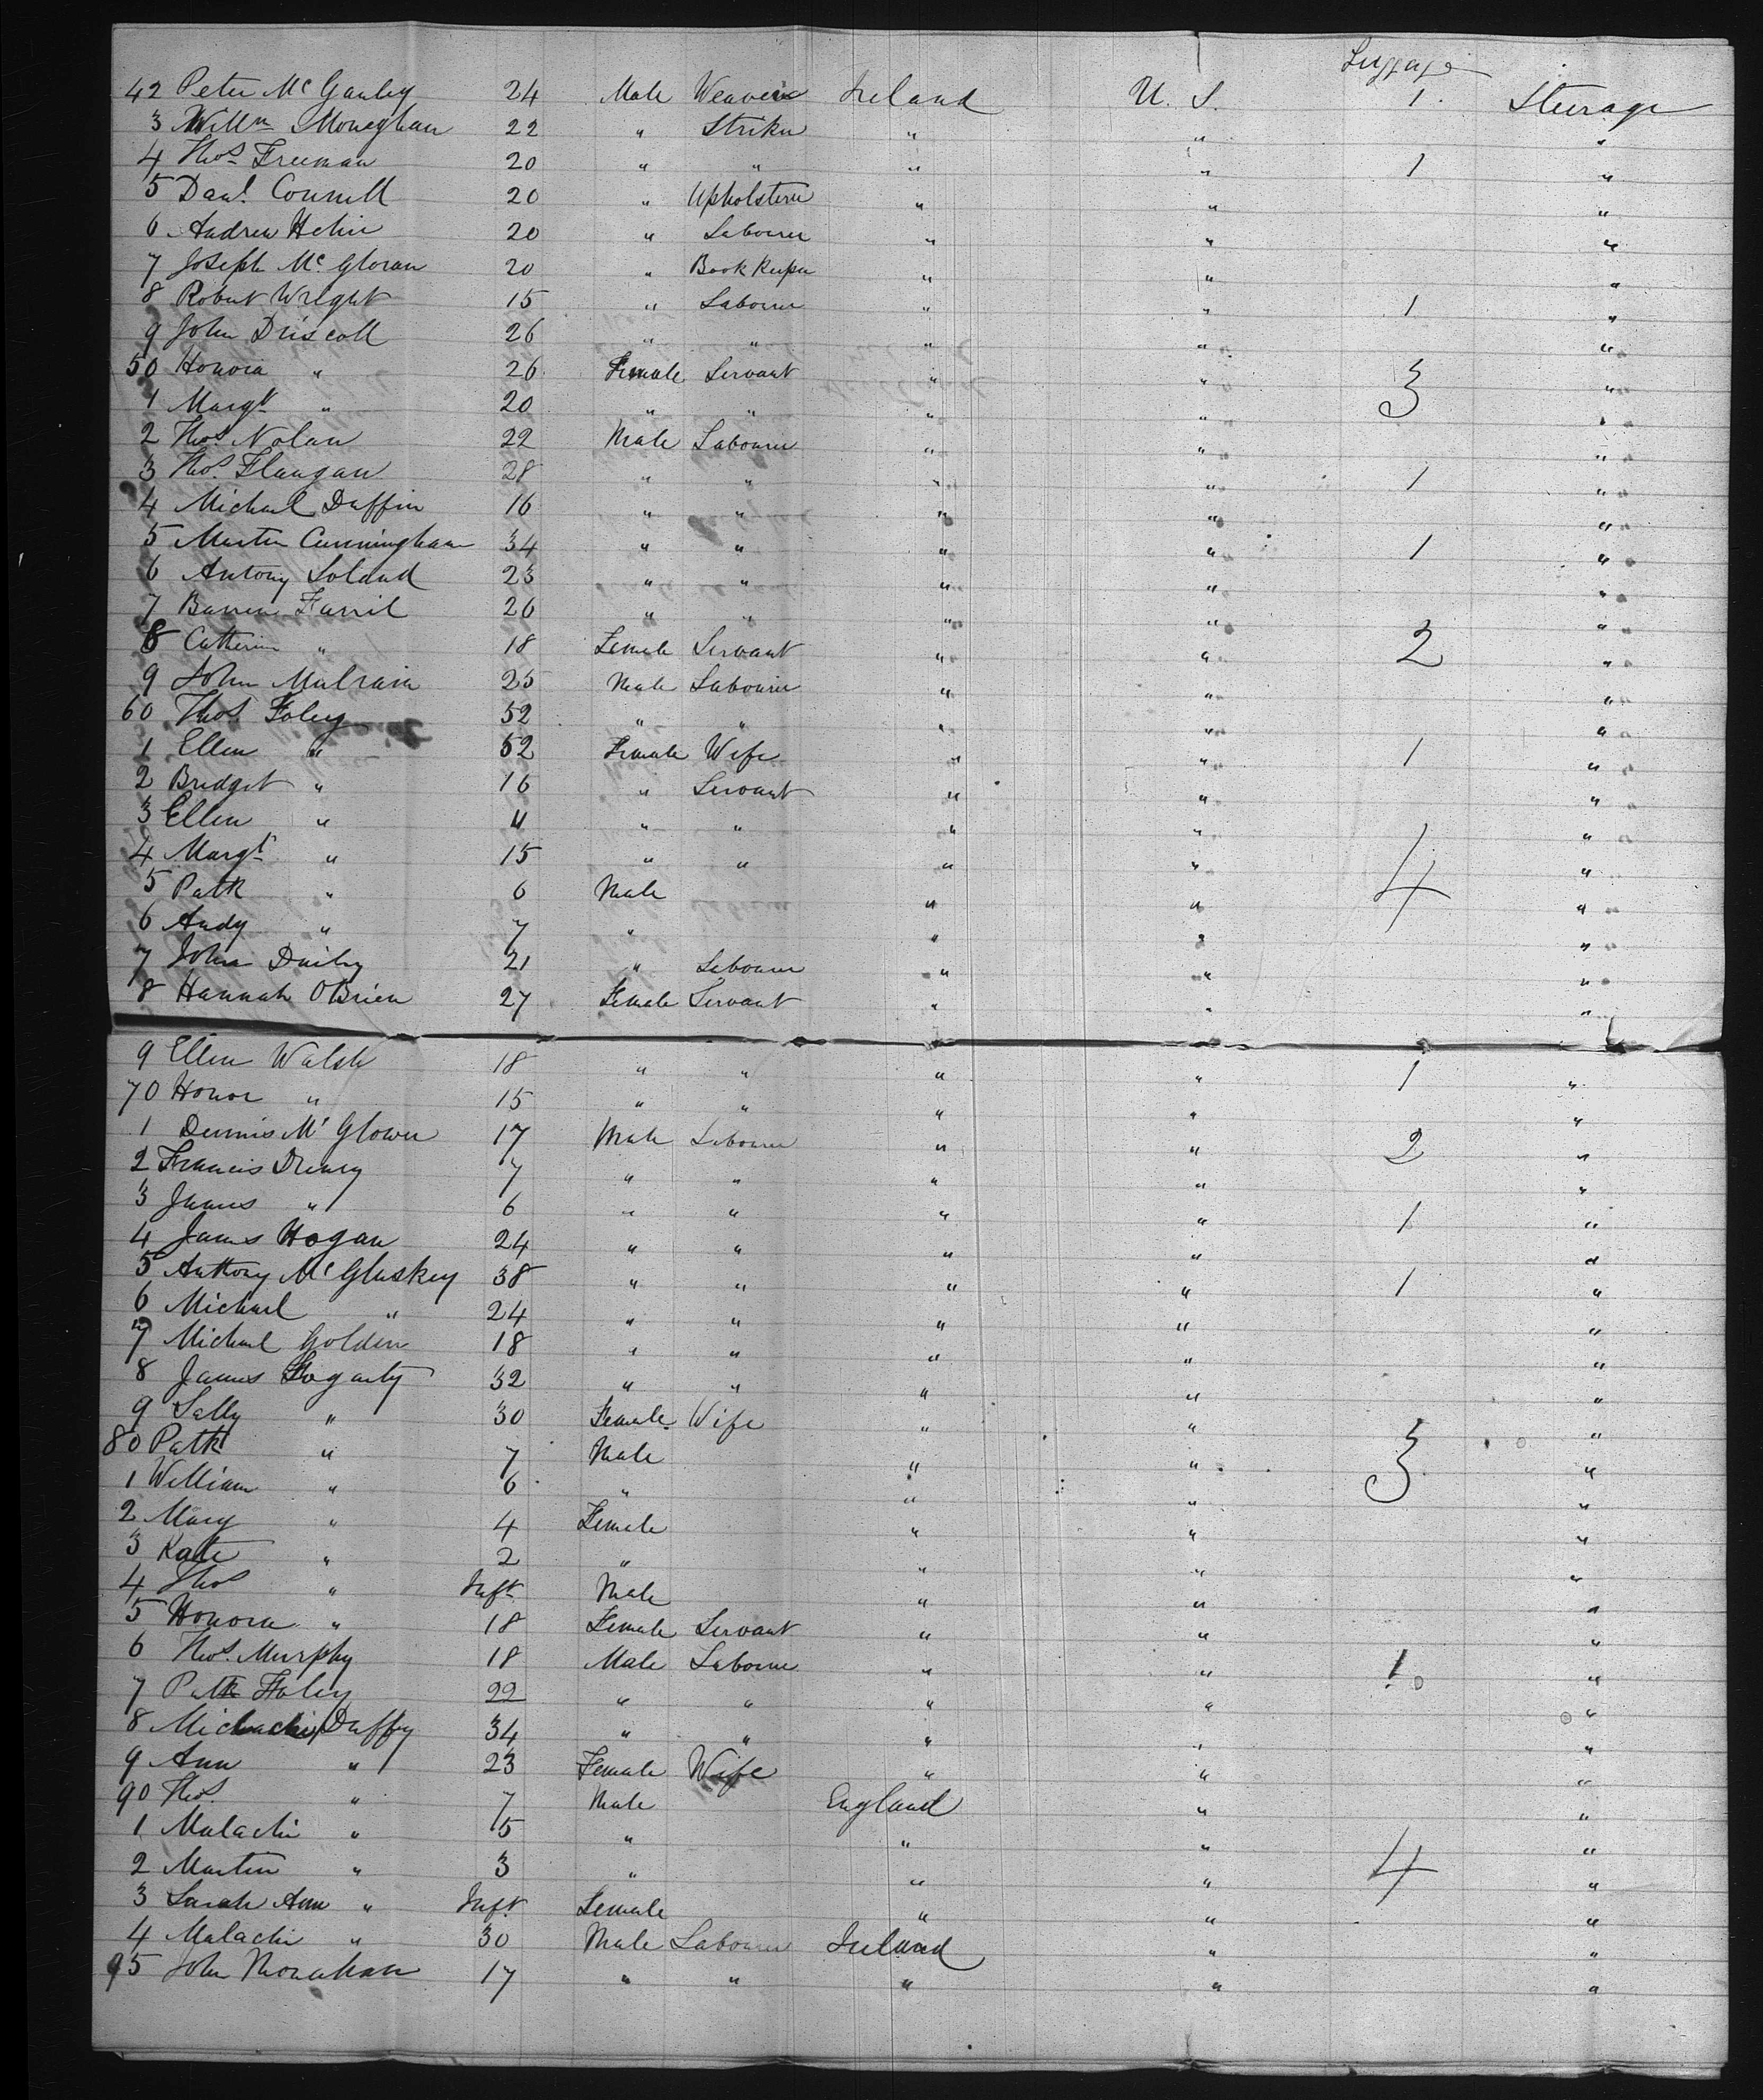 Luggage
42 Peter McGanley 24 Male Weaver Ireland U. S. 1 Steerage
3 Willm Moneghan 22 " Striker " " "
4 Thos Freeman 20 " " " " 1 "
5 Danl Connell 20 " Upholsterer " " "
6 Andrew 20 " Labourer " " "
7 Joseph McGloran 20 " Book Keeper " " "
8 Robert Wright 15 " Labourer " " 1 "
9 John Driscoll 26 " " " " "
50 Honora " 26 Female Servant " " 3 "
1 Margt " 20 " " " " "
2 Thos Nolan 22 Male Labourer " " "
3 Thos Flangan 28 " " " " 1 "
4 Michael Duffin 16 " " " " "
5 Martin Cunningham 34 " " " " 1 "
6 Antony Soland 23 " " " " "
7 Farril 26 " " " " "
8 Catherine " 18 Female Servant " " 2 "
9 John Mulrain 25 Male Labourer " " "
60 Thos Foley 52 " " " " "
1 Ellen " 52 Female Wife " " 1 "
2 Bridget " 16 " Servant " " "
3 Ellen " 11 " " " " "
4 Margt " 15 " " " " 4 "
5 Patk " 6 Male " " "
6 Andy " 7 " " " "
7 John Dailey 21 " Labourer " " "
8 Hannah OBrien 27 Female Servant " " "
9 Ellen Walsh 18 " " " " 1 "
70 Honor " 15 " " " " "
1 Dennis McGlower 17 Male Labourer " " 2 "
2 Francis Drewry 7 " " " " "
3 James " 6 " " " " 1 "
4 James Hogan 24 " " " " "
5 Anthony McGluskey 38 " " " " 1 "
6 Michael " 24 " " " " "
7 Michael Golden 18 " " " " "
8 James Fogarty 32 " " " " "
9 Sally " 30 Female Wife " " "
80 Patk " 7 Male " " 3 "
1 William " 6 " " " "
2 Mary " 4 Female " " "
3 Kate " 2 " " " "
4 Thos " Inft Male " " "
5 Honora " 18 Female Servant " " "
6 Thos Murphy 18 Male Labourer " " 1 "
7 Patk Foley 22 " " " " "
8 Duffy 34 " " " " "
9 Ann " 23 Female Wife " " "
90 Thos " 7 Male England " "
1 Malachi " 5 " " " "
2 Martin " 3 " " " 4 "
3 Sarah Ann " Inft Female " " "
4 Malachi " 30 Male Labourer Ireland " "
95 John Monahan 17 " " " " "